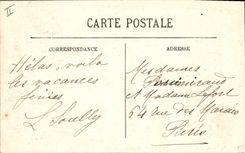 II
CARTE POSTALE
CORRESPONDANCE
ADRESSE
Hélas, voilà
les vacances
finies
Mesdames
et Madame Lefort
54 rue des Marais
Paris